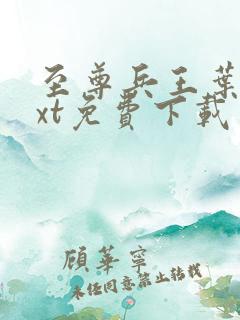 至尊兵王葉
xt免費下載
顧華寧
未经同意禁止转载